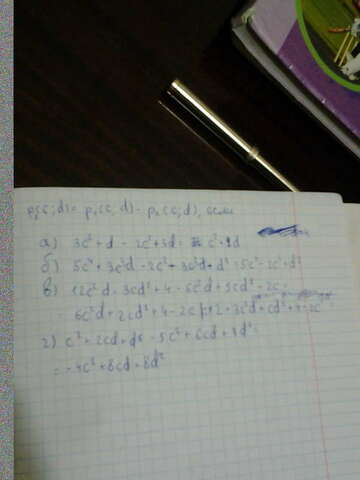 p(c;d) = p₁(c;d) - p₂(c;d), если
а) 3c² + d - 2c² + 3d = c² + d
б) 5c⁴ + 3c²d - 2c² + d² = 5c⁴ - 2c² + d²
в) 12c²d - 3cd² + 4 - 6c²d + 5cd² - 2c =
= 6c²d + 2cd² + 4 - 2c
г) c² + 2cd + d² - 5c² + 6cd + 7d² =
= -4c² + 8cd + 8d²